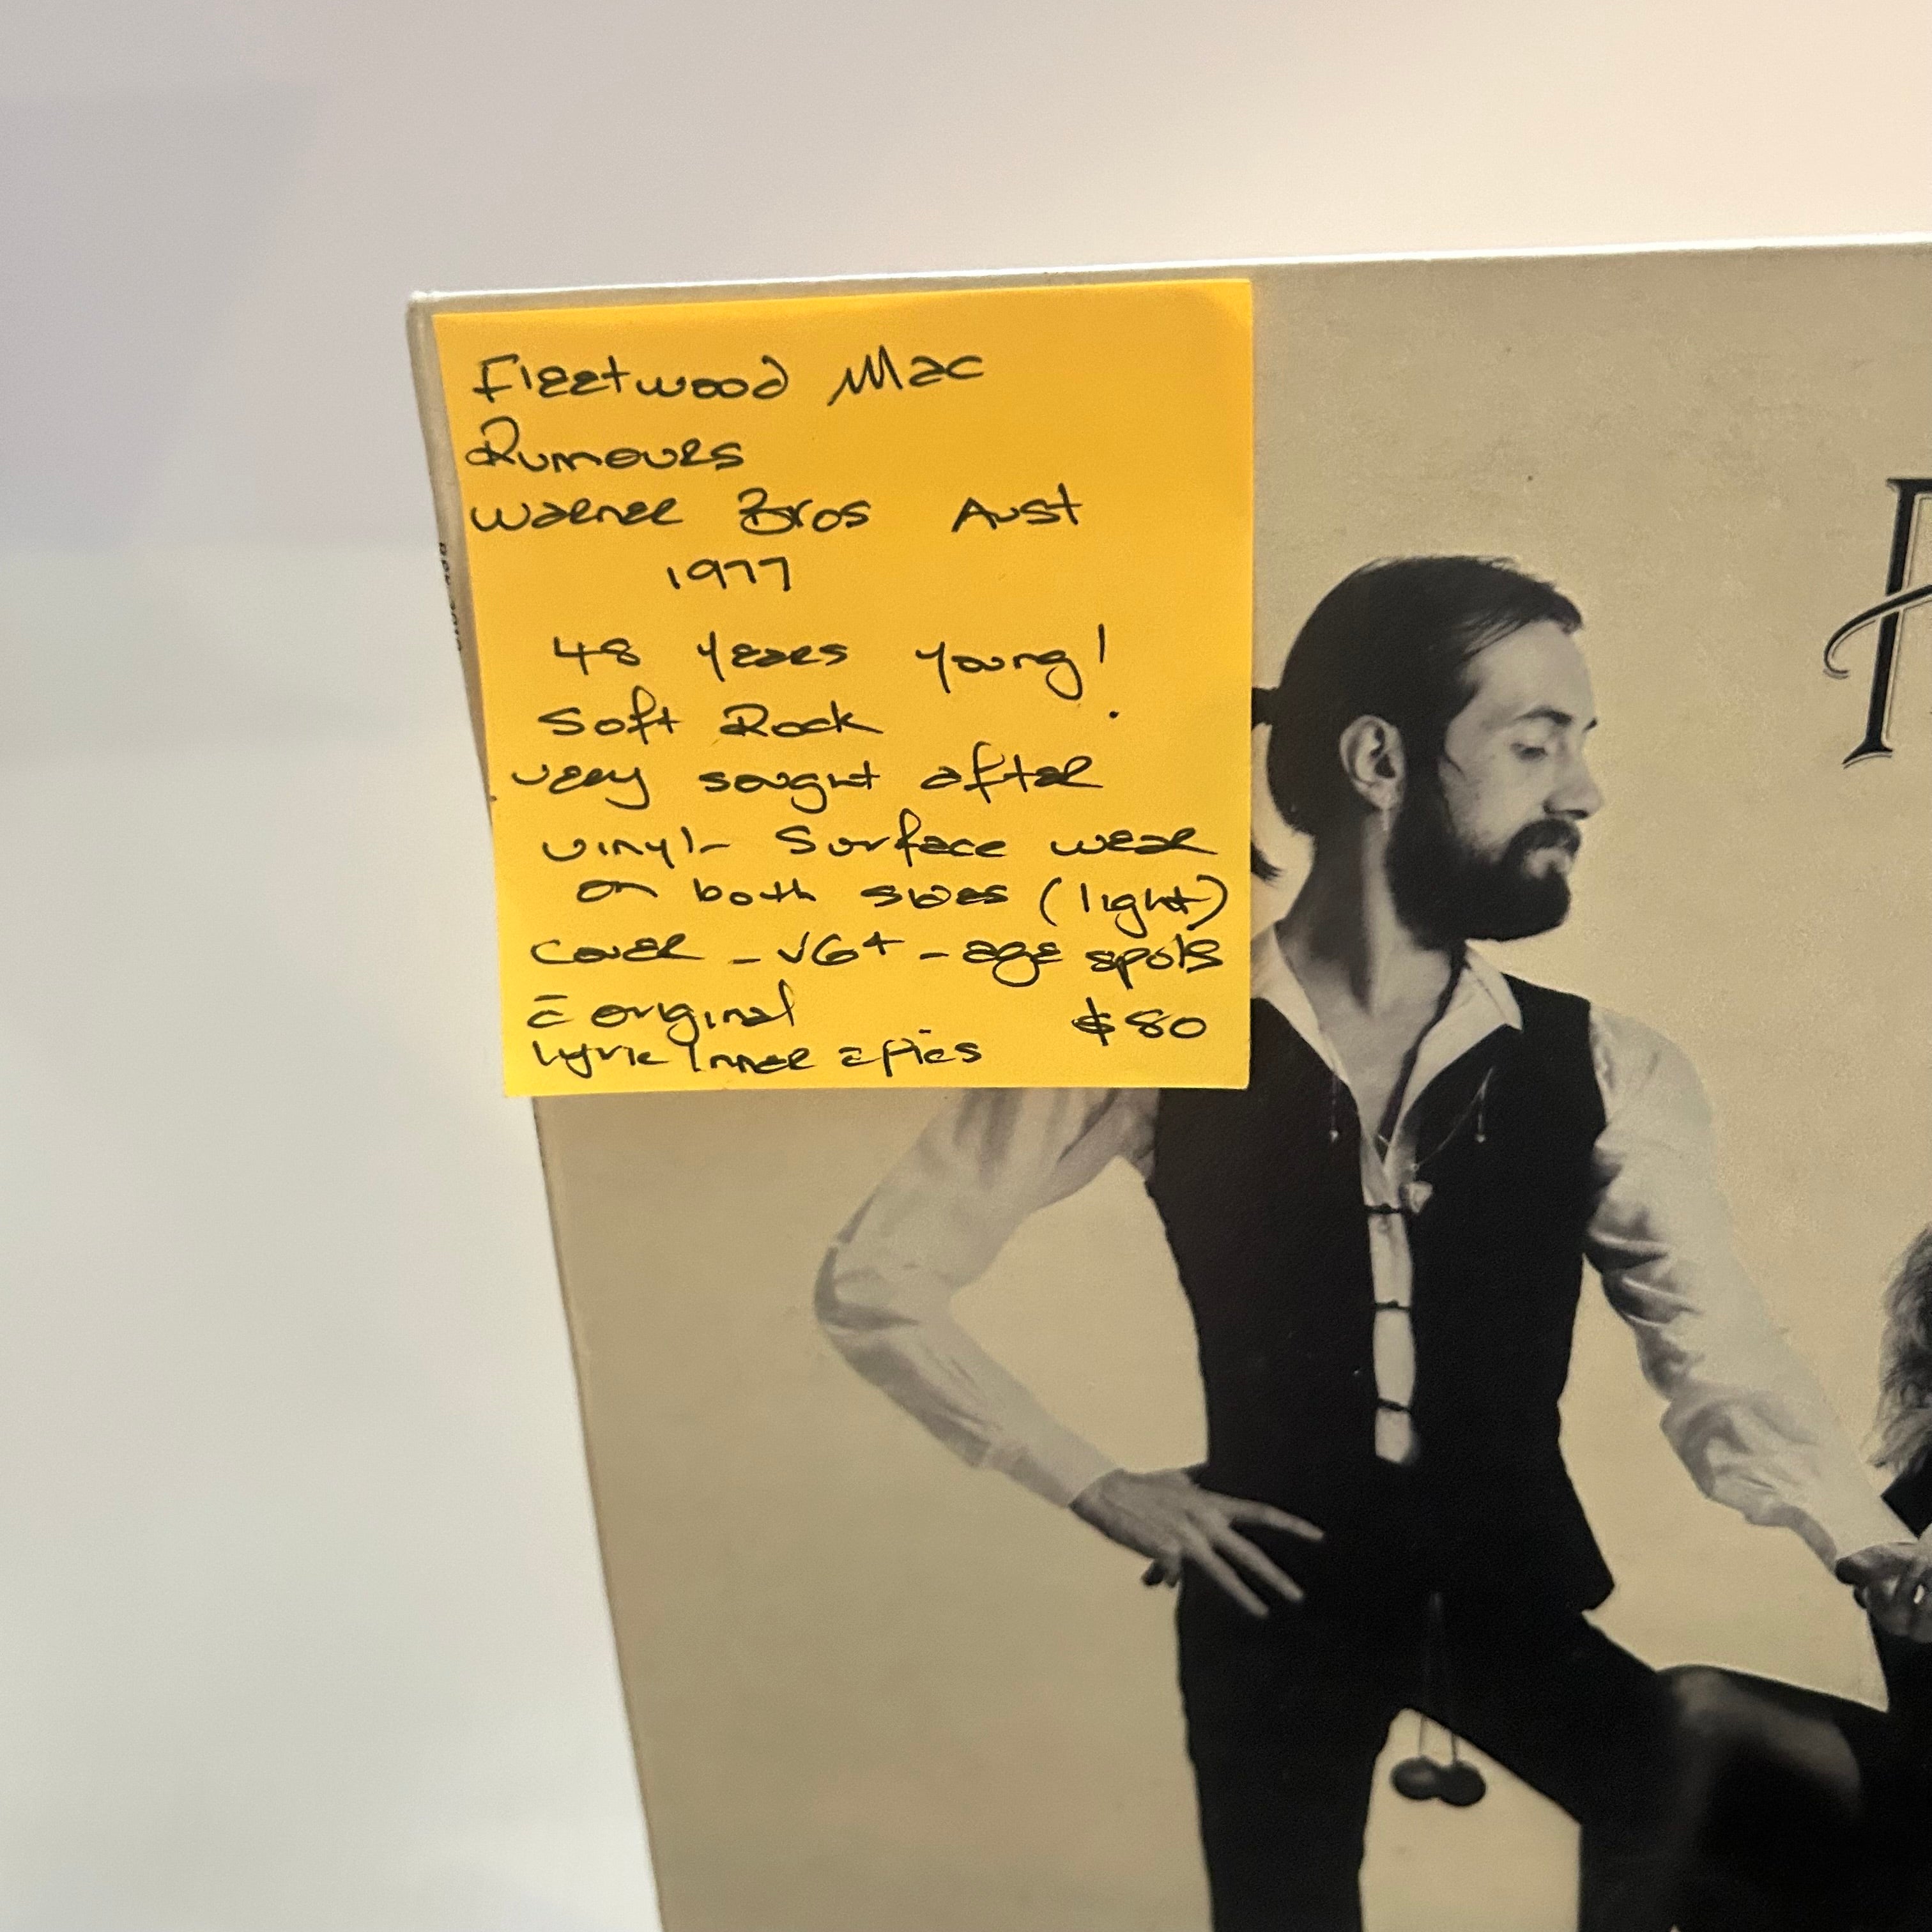 Fleetwood Mac
Rumours
Warner Bros Aust
1977
48 years young!
Soft Rock
very sought after
vinyl - Surface wear
on both sides (light)
Cover - VG+ - age spots
c̄ original
$80
Lyric Inner c̄ pics
F